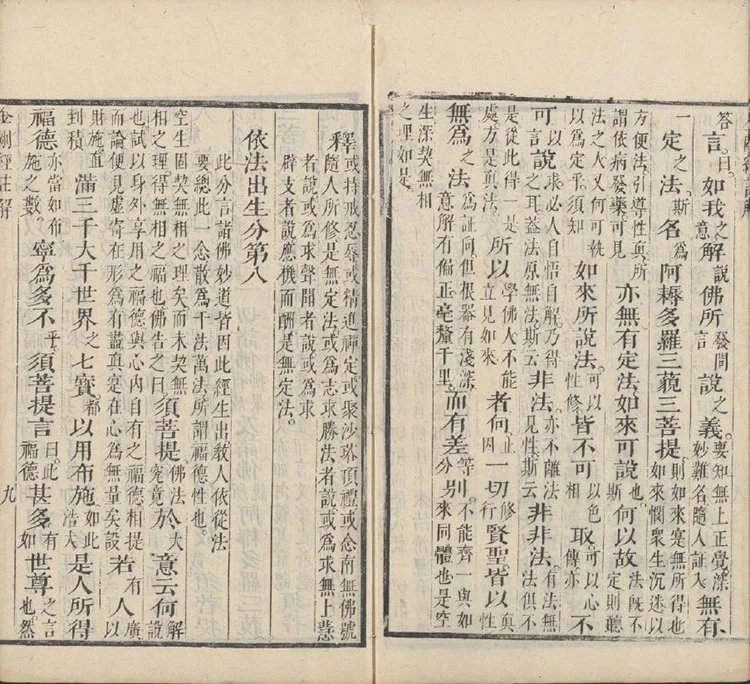 答言。曰。如我之意解說佛所發問言說之義要知無上正覺深妙難名隨人證入無有
一定之法斯名為阿耨多羅三藐三菩提則如來寔無所得也如來憫衆生沉迷以
方便法引導性真所謂依病發藥可見亦無有定法如來可說也。斯何以故法既不定則聽
法之人又何可執以為定乎。須知如來所說法。可以性修皆不可以色相取。可以心傳亦不
可說。可以求必人自悟自解乃得言之耳蓋法原無法斯云非法。亦不離法見性。斯云非非法。有法無法俱不
是從此得一處方是真法。所以學佛人不能立見如來者何。止因一切修行賢聖皆以真性
無為之法為証同但根器有淺深意解有偏正毫釐千里。而有差等分別。不能齊一與如來同體也是空
生深契無相之理如是。
釋或持戒忍辱或精進禪定或聚沙塔頂禮或念南無佛號
隨人所修是無定法或為志求勝法者說或為求無上慧
者說或為求聲聞者說或為求
辟支者說應機而酬是無定法。
依法出生分第八
此分言諸佛妙道皆因此經生出教人依從法
要總此一念散為千法萬法所謂福德性也。
空生固契無相之理矣而未契無相之理得無相之福也佛告之曰須菩提佛法大究竟於意云何解說
也試以身外享用之福德與心內自有之福德相提而論便見虛寄在形為有盡真寔在心為無量矣設若有人廣以
財施直到積滿三千大千世界之七寶。都以用布施如此浩大是人所得
福德亦當如布施之數寧為多不乎。須菩提言曰此福德甚多如世尊之言也。然
金剛經註解 九